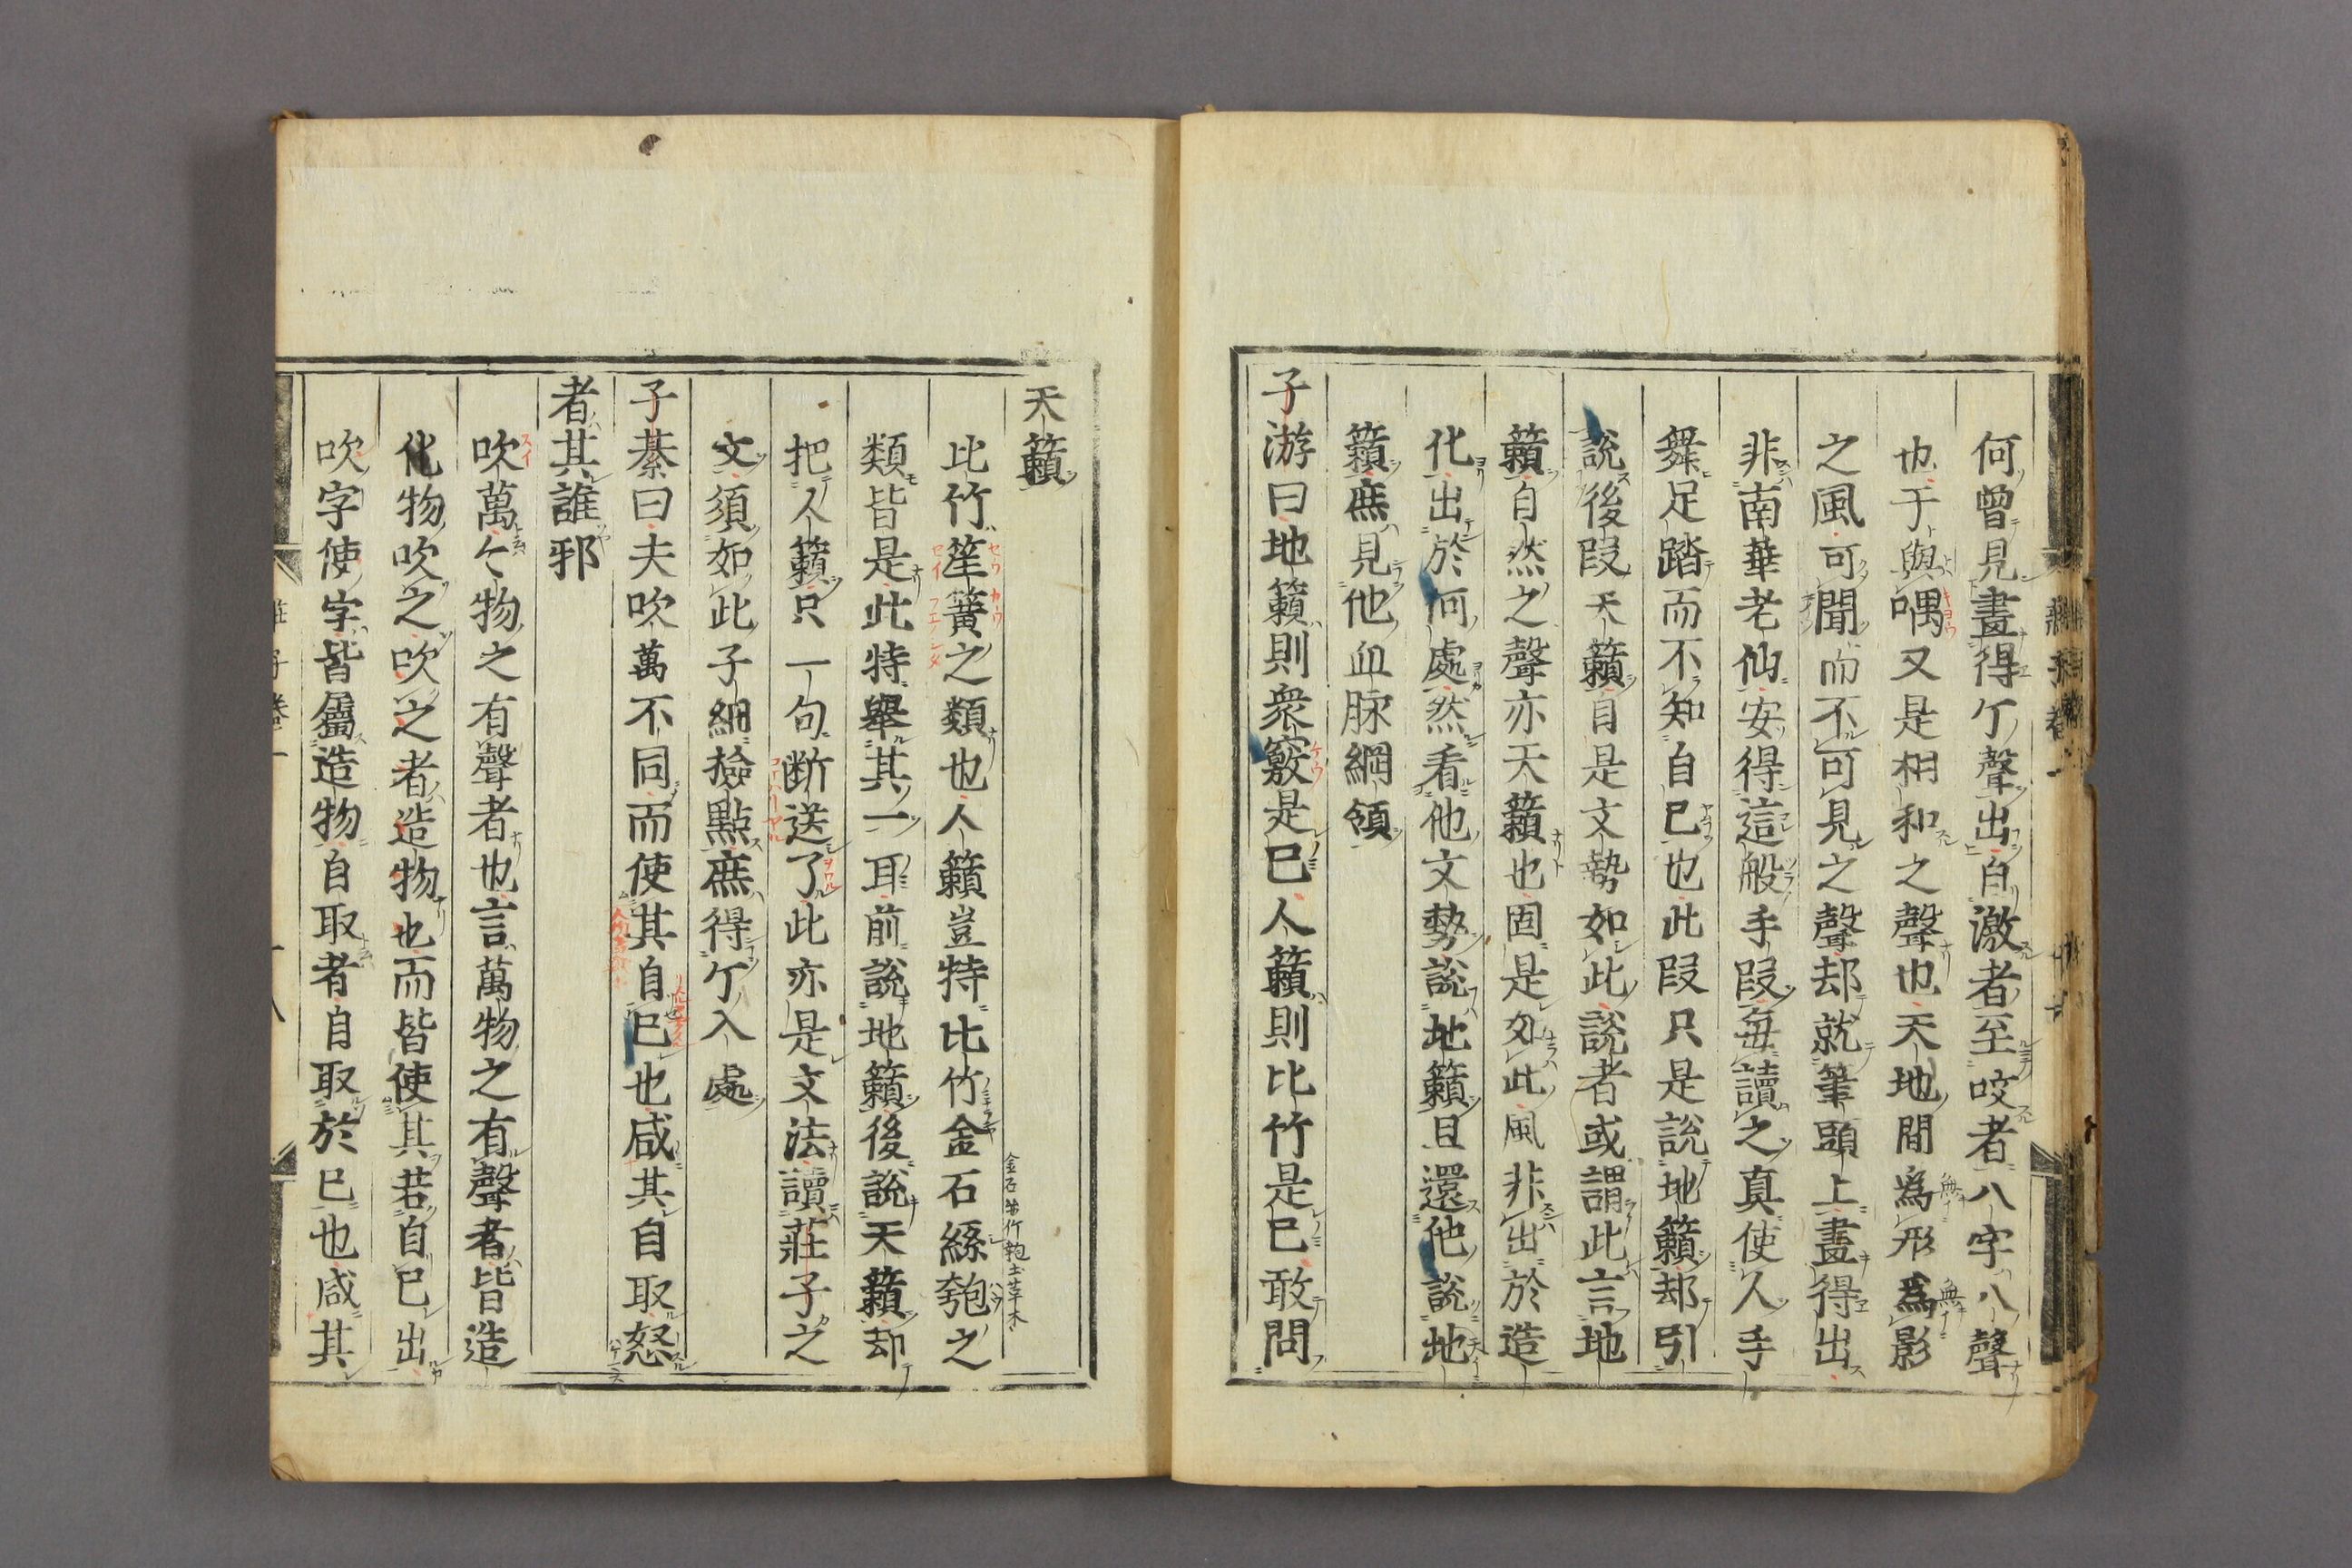 何曾見畫得个聲出自激者至咬者八字八聲
也于與喁又是相和之聲也天地間爲形爲影
之風可聞而不可見之聲却就筆頭上畫得出
非南華老仙安得這般手叚每讀之真使人手
舞足踏而不知自巳也此叚只是說地籟却引
說後叚天籟自是文勢如此說者或謂此言地
籟自然之聲亦天籟也固是如此風非出於造
化出於何處然看他文勢說地籟且還他說地
籟庶見他血脉綱領
子游曰地籟則衆竅是巳人籟則比竹是巳敢問
天籟
比竹笙簧之類也人籟豈特比竹金石絲匏之
類皆是此特舉其一耳前說地籟後說天籟却
把人籟只一句断送了此亦是文法讀莊子之
文須如此子細撿點庶得个入處
子綦曰夫吹萬不同而使其自巳也咸其自取怒
者其誰邪
吹萬々物之有聲者也言萬物之有聲者皆造
化物吹之吹之者造物也而皆使其若自巳出
吹字使字皆屬造物自取者自取於巳也咸其